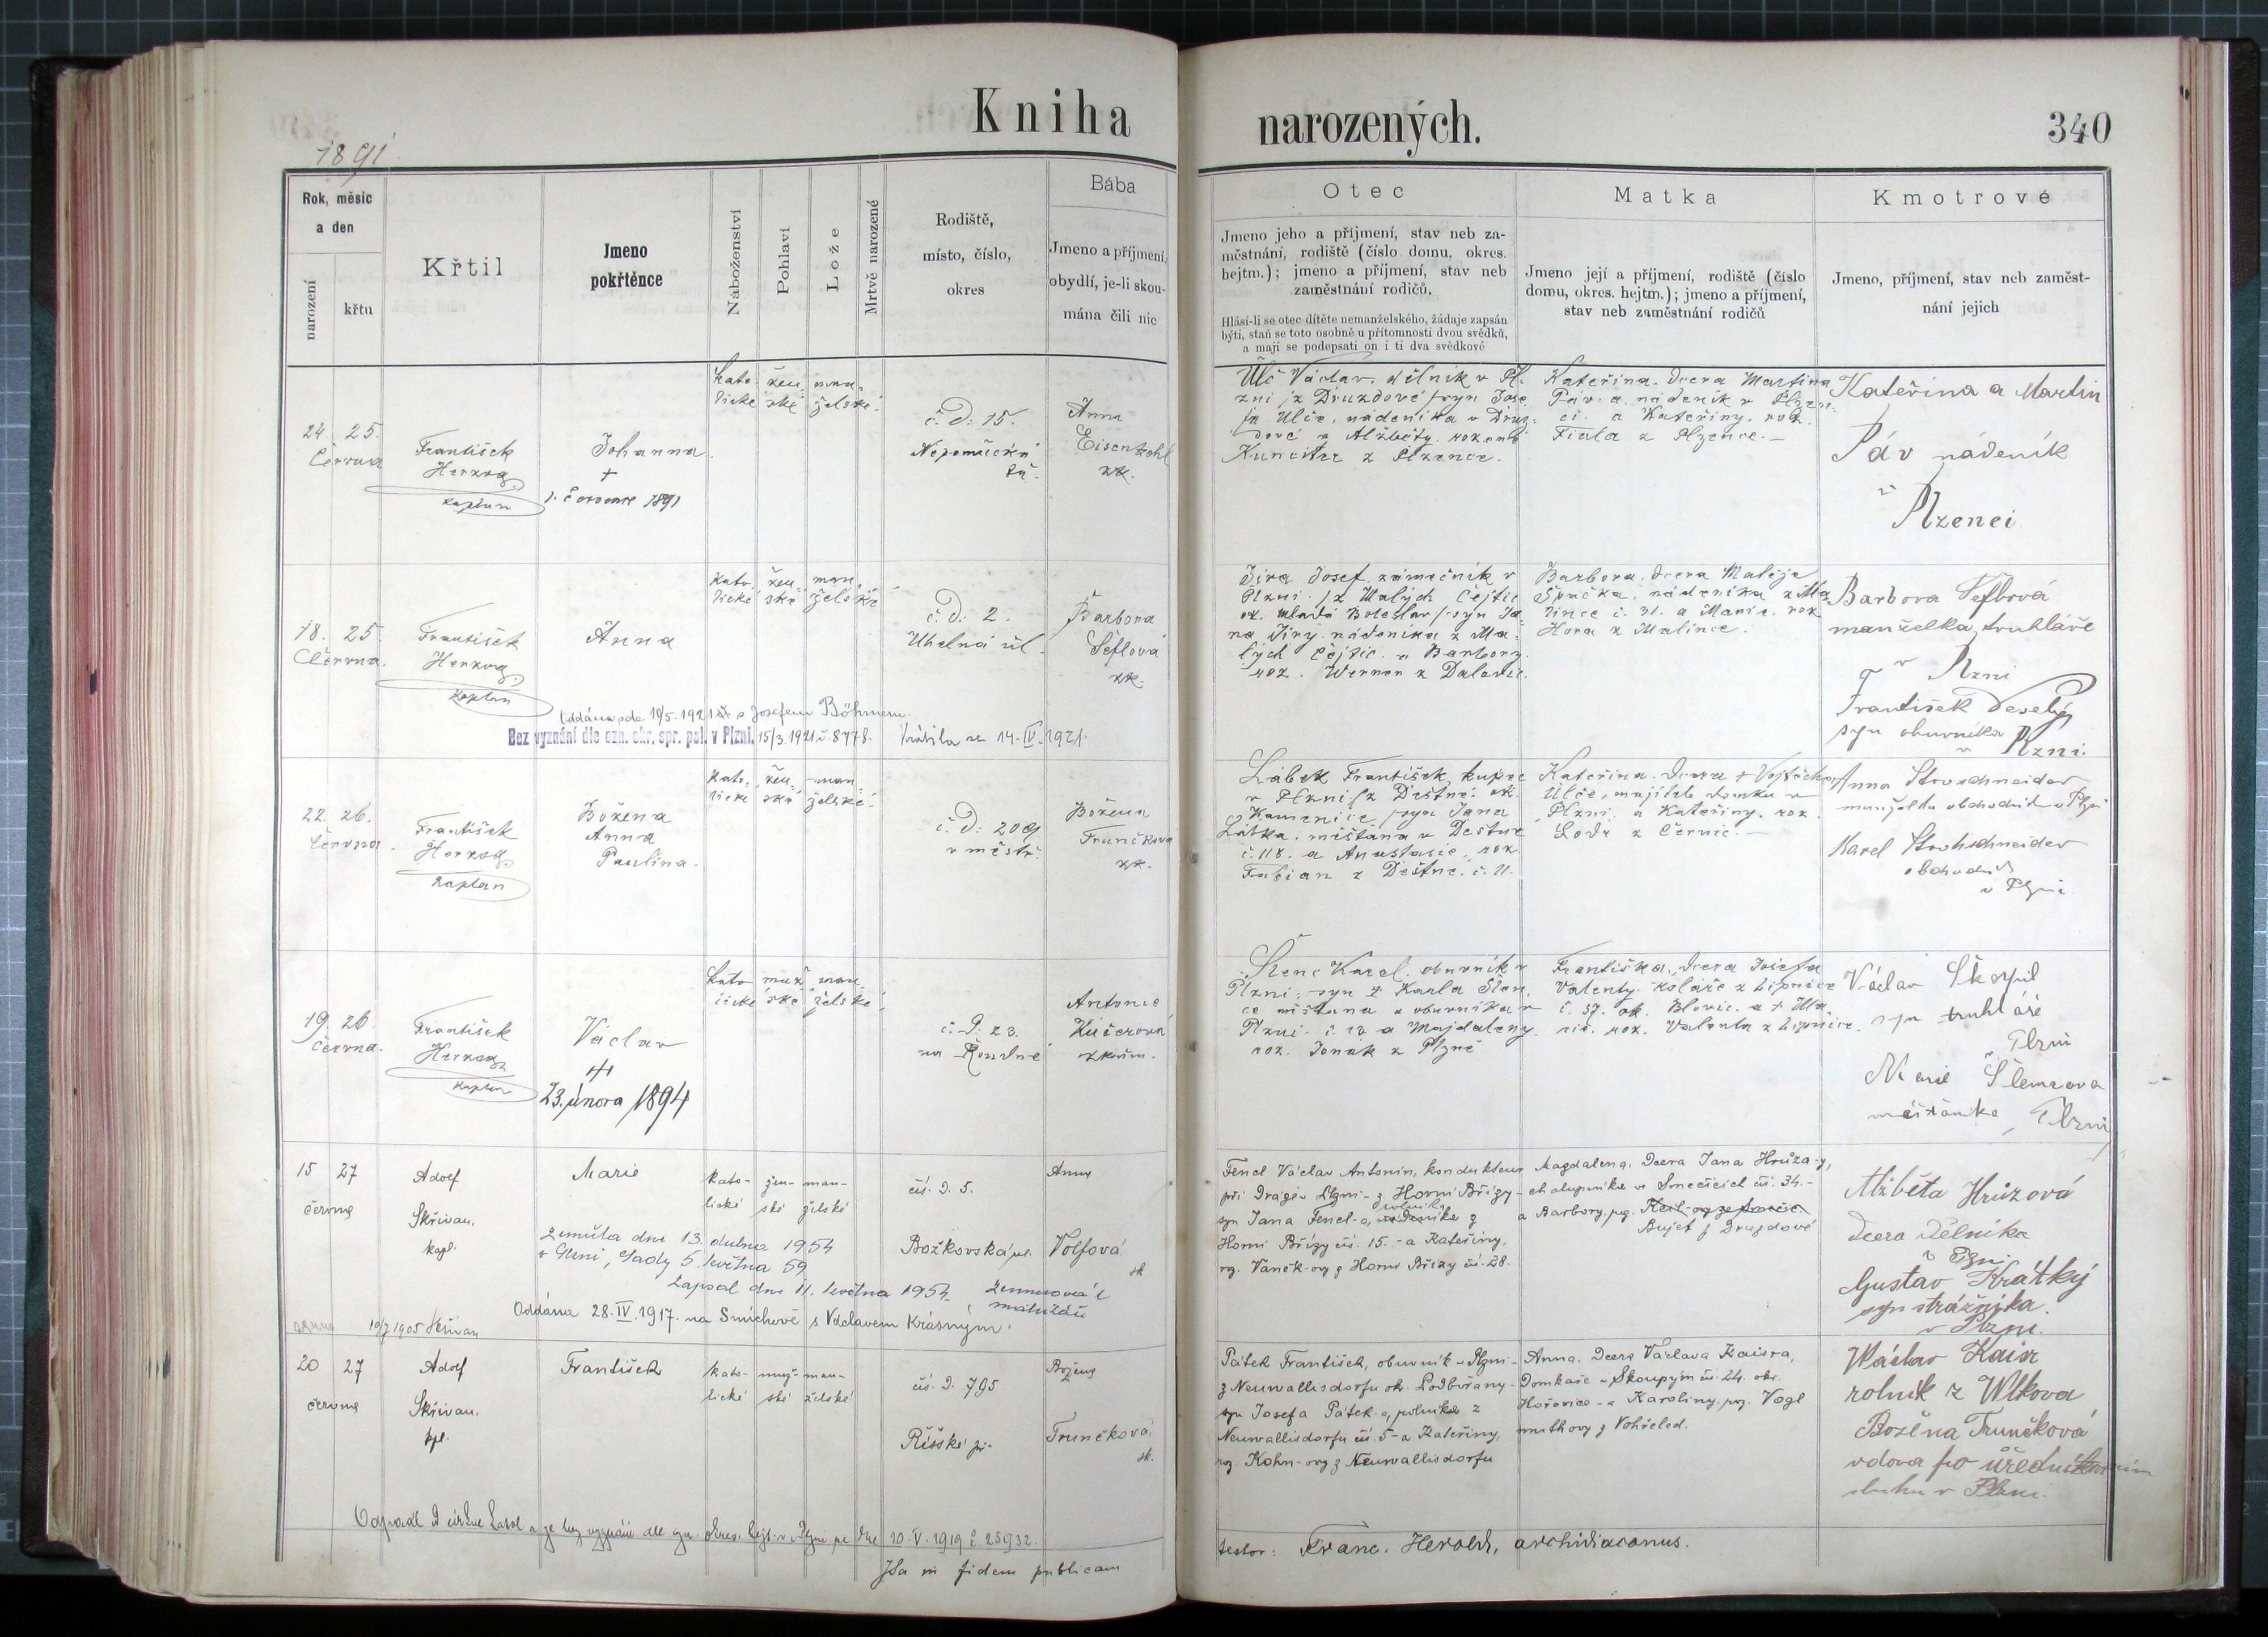 Kniha narozených.
340
1891
Rok, měsíc
a den
narození
křtu
Křtil
Jmeno
pokřtěnce
Náboženství
Pohlaví
Lože
Mrtvě narozené
Rodiště,
místo, číslo,
okres
Bába
Jmeno a příjmení,
obydlí, je-li skou-
mána čili nic
Otec
Jmeno jeho a příjmení, stav neb za-
městnání, rodiště (číslo domu, okres.
hejtm.); jmeno a příjmení, stav neb
zaměstnání rodičů.
Hlásí-li se otec dítěte nemanželského, žádaje zapsán
býti, staň se toto osobně u přítomnosti dvou svědků,
a mají se podepsati on i ti dva svědkové
Matka
Jmeno její a příjmení, rodiště (číslo
domu, okres. hejtm.); jmeno a příjmení,
stav neb zaměstnání rodičů
Kmotrové
Jmeno, příjmení, stav neb zaměst-
nání jejich
24. 25.
Června
František
Herzog
kaplan
Johanna.
+
1. července 1891
kato- žen- man-
lické ské želské
č. D. 15.
Nepomucká
tř.
Anna
Eisenkohl
zk.
Ulč Václav, dělník v Pl-
zni /z Druzdové/ syn Jose-
fa Ulče, nádeníka v Druz-
dové a Alžběty, rozené
z Plzence.
Kateřina, dcera Martina
Páv-a, nádeník v Plzen-
ci a Kateřiny, roz.
Fiala z Plzence.
Kateřina a Martin
Páv nádeník
v
Plzenci
18. 25.
Června.
František
Herzog
kaplan
Anna
kato- žen- man-
lické ské želské
č. D. 2.
Uhelná ul.
Barbora
Šeflová
zk.
Oddána dle 10/5. 1921 s Josefem Böhmem.
Bez vyznání dle ozn. okr. spr. pol. v Plzni, 15/3. 1921. č. 8778. Vrátila se 14. IV. 1921.
Jíra Josef, zámečník v
Plzni /z Malých Čejtic
ok. Mladá Boleslav/ syn Ja-
na Jíry, nádeníka z Ma-
lých Čejtic a Barbory,
roz. Werner z Dalovic.
Barbora, dcera Matěje
Špačka, nádeníka z Ma-
lince č. 31. a Marie, roz.
Hora z Malince.
Barbora Šeflová
manželka truhláře
v Plzni
František Veselý
syn obuvníka
v Plzni.
22. 26.
Června.
František
Herzog
kaplan
Božena
Anna
Paulina.
kato- žen- man-
lické ské želské
č. D. 209
v městě.
Božena
Trunčková
zk.
Lábek František, kupec
v Plzni /z Deštné, ok.
Kamenice/ syn Jana
Lábka, měšťana v Deštné
č. 118. a Anastasie, roz.
Fabian z Deštné, č. 11.
Kateřina, dcera + Vojtěcha
Ulče, majitele domku v
Plzni a Kateřiny, roz.
Lodr z Černic.
Anna Strohschneider
manželka obchodník v Plzni
Karel Strohschneider
obchodník
v Plzni
19. 26.
června.
František
Herzog
kaplan
Václav
+
23. února 1894
kato- muž- man-
lické ské želské
č. D. 23.
na Roudné
Antonie
Kučerová
zkoum.
Karel, obuvník v
Plzni, syn + Karla
měšťana a obuvníka v
Plzni, č. 18 a Majdaleny
roz. Jonák z Plzně
Františka, dcera Josefa
Valenty, koláře z Lipnice
č. 37. ok. Blovic. a + Ma-
rie, roz. Valenta z Lipnice.
Václav Škopil
syn truhláře
Plzni
Marie
měšťanka, Plzni
15 27
června
Adolf
Skřivan,
kapl.
Marie
kato- žen- man-
lické ské želské
čís. D. 5.
Božkovská ul.
Anna
Volfová
zk
Zemřela dne 13. dubna 1954
v Plzni, Sady 5. května 59
Zapsal dne 11. května 1954.
Oddána 28. IV. 1917. na Smíchově s Václavem Krásným.
10/7 1905 Skřivan
Fencl Václav Antonín, kondukteur
při dráze v Plzni - z Horní Břízy -
syn Jana Fencl-a, rolníka z
Horní Břízy čís. 15. - a Kateřiny,
roz. Vaněk-ovy z Horní Břízy čís. 28.
Magdalena, Dcera Jana Hrůza-y,
chalupníka ve Smečicích čís. 34. -
a Barbory, roz.
Bujet z Druzdové
Alžběta Hrůzová
dcera dělníka
v Plzni
Gustav Krátký
syn strážníka
v Plzni.
20 27
června
Adolf
Skřivan,
kpl.
František
kato- muž- man-
lické ské želské
čís. D. 795
Božena
Trunčková
zk.
Pátek František, obuvník v Plzni -
z Neuwallisdorfu ok. Podbořany -
syn Josefa Pátek-a, rolníka z
Neuwallisdorfu čís. 5 - a Kateřiny,
roz. Kohn-ovy z Neuwallisdorfu
Anna, Dcera Václava Kaisra,
Domkaře v Skoupým čís. 24. okr.
Hořovice - a Karoliny, roz. Vogl
z Vohřeled.
Václav Kaisr
rolník z Wlkova
Božena Trunčková
vdova po
sluhu v Plzni.
Odpadl od církve katol. a je bez vyznání dle ozn. okres. hejt. v Plzni ze dne 10. V. 1919 č. 25932.
Ita in fidem publicam
testor: Franc. Herold, archidiaconus.